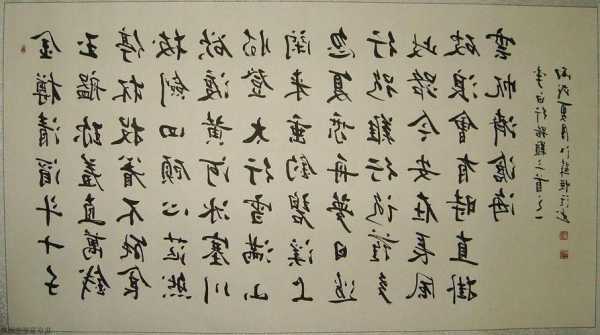 金樽清酒斗十千
玉盤珍羞直萬錢
停杯投箸不能食
拔劍四顧心茫然
欲渡黃河冰塞川
將登太行雪滿山
閒来垂釣碧溪上
忽復乘舟夢日邊
行路難行路難多
歧路今安在長風
破浪會有時直掛
雲帆濟滄海
李白行路難三首之一
丙戌夏月江蘇